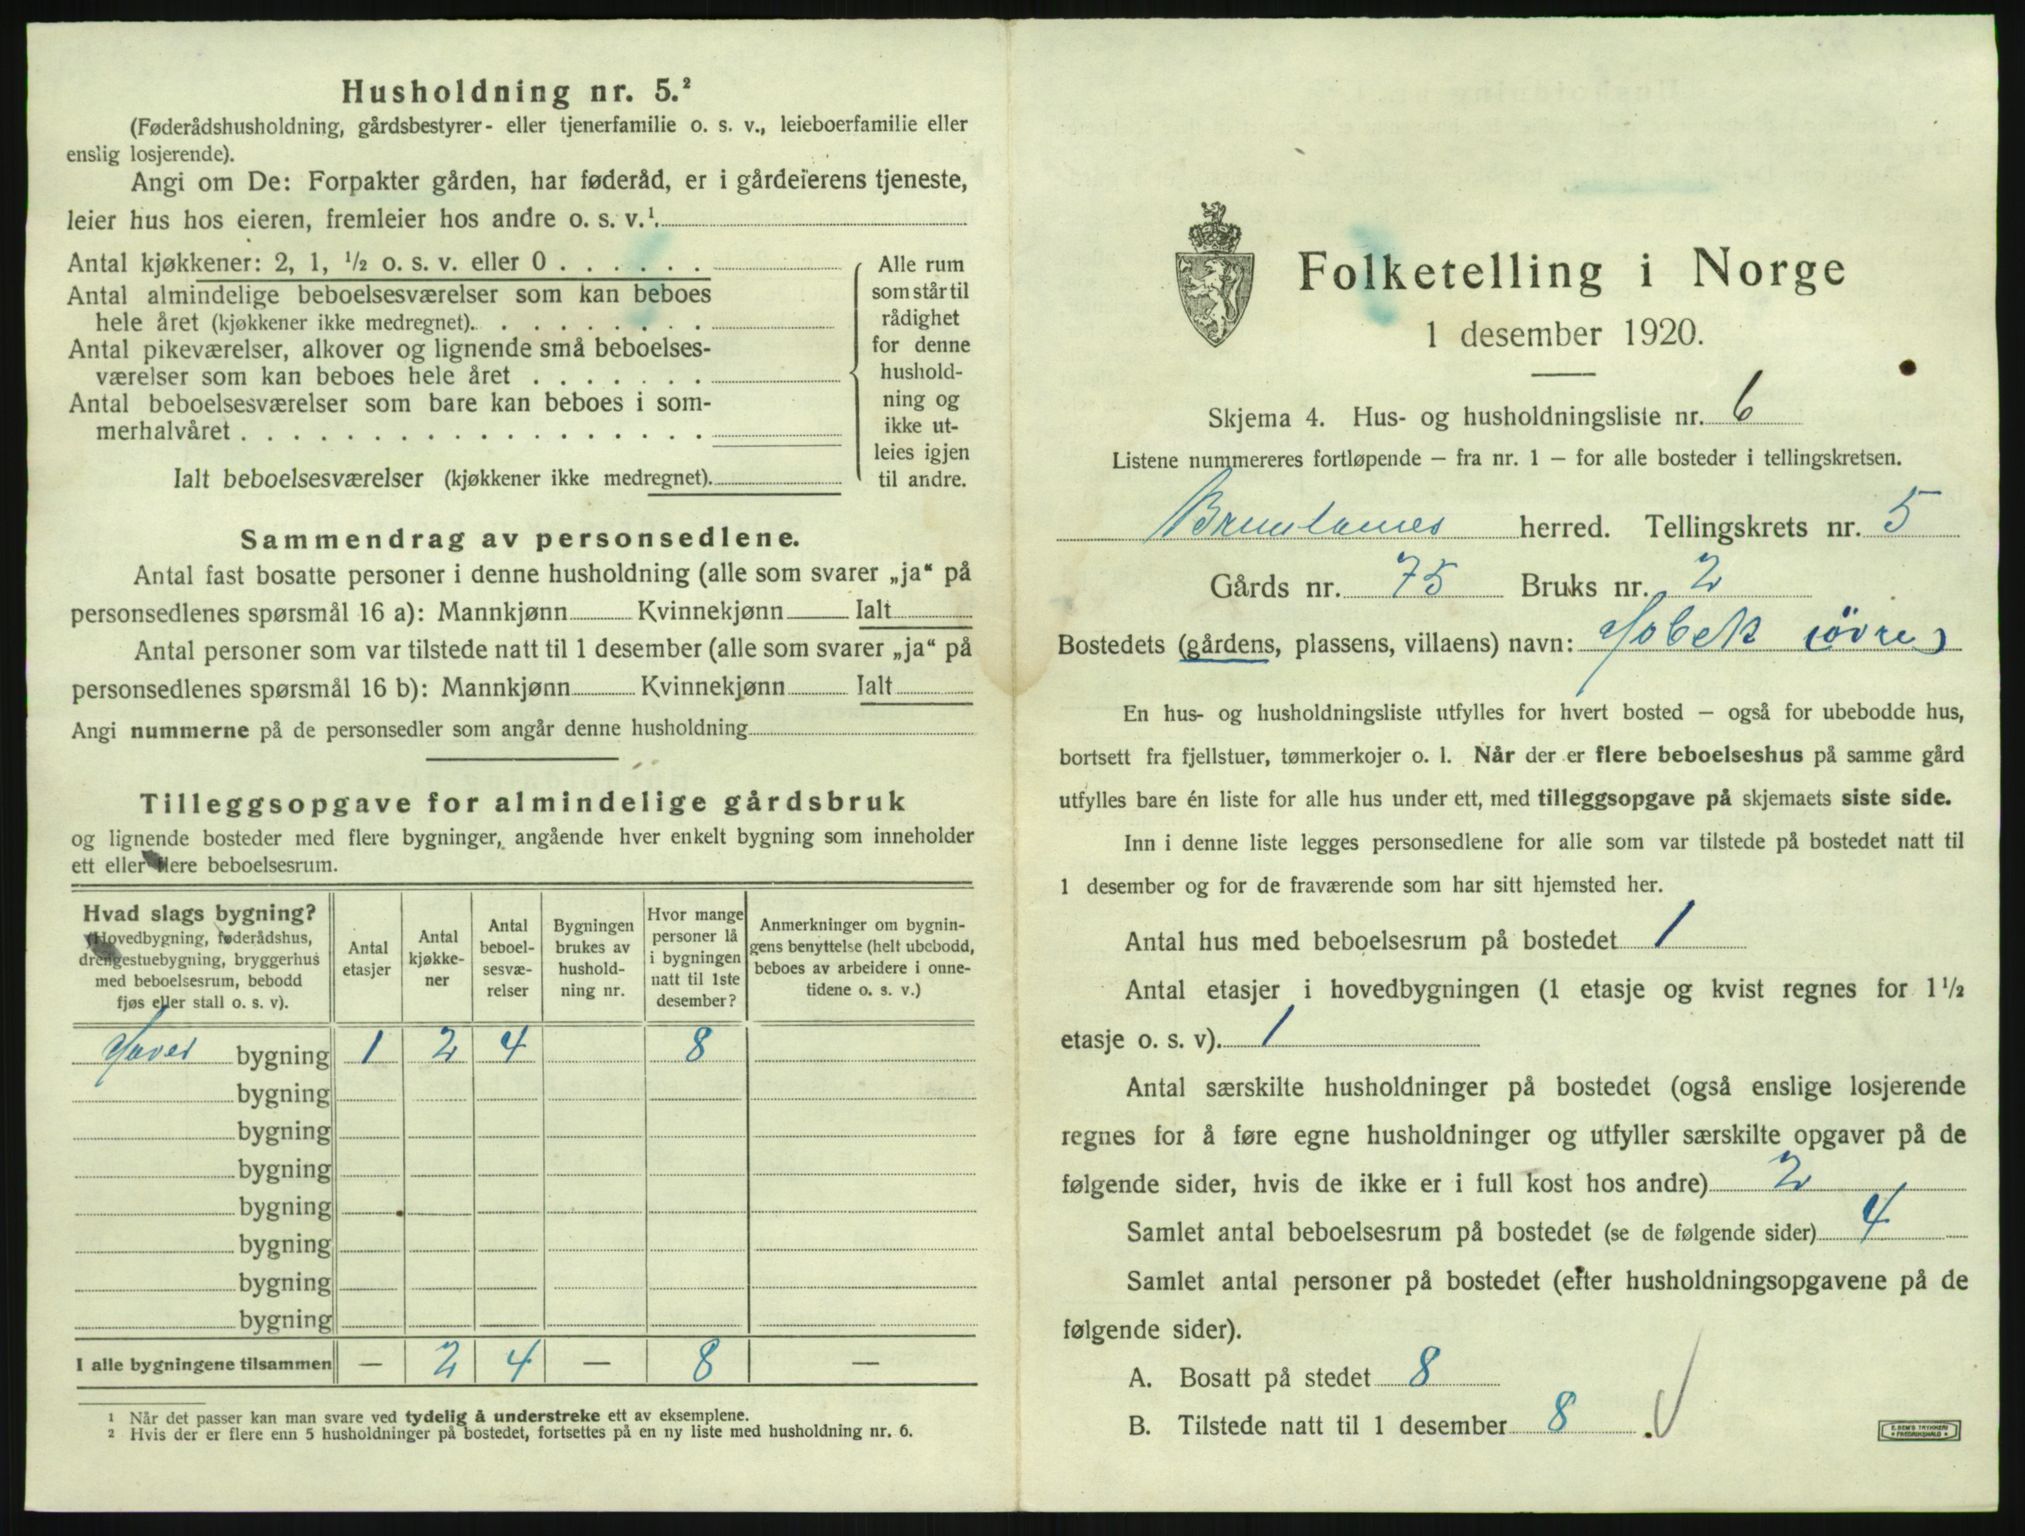 Husholdning nr. 5.²
(Føderådshusholdning, gårdsbestyrer- eller tjenerfamilie o. s. v., leieboerfamilie eller
enslig losjerende).
Angi om De: Forpakter gården, har føderåd, er i gårdeierens tjeneste,
leier hus hos eieren, fremleier hos andre o. s. v.¹.
Antal kjøkkener: 2, 1, ½ o. s. v. eller 0 . . . . . .
Antal almindelige beboelsesværelser som kan beboes
hele året (kjøkkener ikke medregnet). . . . . . . . .
Antal pikeværelser, alkover og lignende små beboelses-
værelser som kan beboes hele året . . . . . . .
Antal beboelsesværelser som bare kan beboes i som-
merhalvåret . . . . . . . . . . . . . . . . . .
Ialt beboelsesværelser (kjøkkener ikke medregnet).
Alle rum
som står til
rådighet
for denne
hushold-
ning og
ikke ut-
leies igjen
til andre.
Sammendrag av personsedlene.
Antal fast bosatte personer i denne husholdning (alle som svarer „ja“ på
personsedlenes spørsmål 16 a): Mannkjønn Kvinnekjønn Ialt
Antal personer som var tilstede natt til 1 desember (alle som svarer „ja“ på
personsedlenes spørsmål 16 b): Mannkjønn Kvinnekjønn Ialt
Angi nummerne på de personsedler som angår denne husholdning
Tilleggsopgave for almindelige gårdsbruk
og lignende bosteder med flere bygninger, angående hver enkelt bygning som inneholder
ett eller flere beboelsesrum.
Hvad slags bygning?
(Hovedbygning, føderådshus,
drengestuebygning, bryggerhus
med beboelsesrum, bebodd
fjøs eller stall o. s. v).
Antal
etasjer
Antal
kjøkke-
ner
Antal
beboel-
sesvæ-
relser
Bygningen
brukes av
hushold-
ning nr.
Hvor mange
personer lå
i bygningen
natt til 1ste
desember?
Anmerkninger om bygnin-
gens benyttelse (helt ubebodd,
beboes av arbeidere i onne-
tidene o. s. v.)
Hoved bygning 1 2 4 8
bygning
bygning
bygning
bygning
bygning
bygning
bygning
I alle bygningene tilsammen — 2 4 — 8 —
¹ Når det passer kan man svare ved tydelig å understreke ett av eksemplene.
² Hvis der er flere enn 5 husholdninger på bostedet, fortsettes på en ny liste med husholdning nr. 6.
Folketelling i Norge
1 desember 1920.
Skjema 4. Hus- og husholdningsliste nr. 6
Listene nummereres fortløpende — fra nr. 1 — for alle bosteder i tellingskretsen.
Brunlanes herred. Tellingskrets nr. 5
Gårds nr. 75 Bruks nr. 2
Bostedets (gårdens, plassens, villaens) navn: Hobek (øvre)
En hus- og husholdningsliste utfylles for hvert bosted — også for ubebodde hus,
bortsett fra fjellstuer, tømmerkojer o. l. Når der er flere beboelseshus på samme gård
utfylles bare én liste for alle hus under ett, med tilleggsopgave på skjemaets siste side.
Inn i denne liste legges personsedlene for alle som var tilstede på bostedet natt til
1 desember og for de fraværende som har sitt hjemsted her.
Antal hus med beboelsesrum på bostedet 1
Antal etasjer i hovedbygningen (1 etasje og kvist regnes for 1½
etasje o. s. v). 1
Antal særskilte husholdninger på bostedet (også enslige losjerende
regnes for å føre egne husholdninger og utfyller særskilte opgaver på de
følgende sider, hvis de ikke er i full kost hos andre) 2
Samlet antal beboelsesrum på bostedet (se de følgende sider) 4
Samlet antal personer på bostedet (efter husholdningsopgavene på de
følgende sider).
A. Bosatt på stedet 8
B. Tilstede natt til 1 desember 8
E. SEM'S TRYKKERI
FREDRIKSHALD